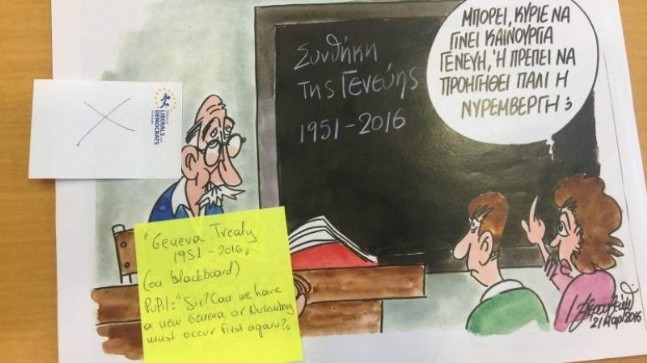 ΜΠΟΡΕΙ, ΚΥΡΙΕ ΝΑ
ΓΙΝΕΙ ΚΑΙΝΟΥΡΓΙΑ
ΓΕΝΕΥΗ, Ή ΠΡΕΠΕΙ ΝΑ
ΠΡΟΗΓΗΘΕΙ ΠΑΛΙ Η
ΝΥΡΕΜΒΕΡΓΗ;
Συνθήκη
της Γενεύης
1951-2016
LIBERALS
DEMOCRATS
"Geneva Treaty
1951-2016"
(on blackboard)
Pupil: "Sir? Can we have
a new Geneva or Nuremberg
must occur first again?"
21 Μαρ 2016